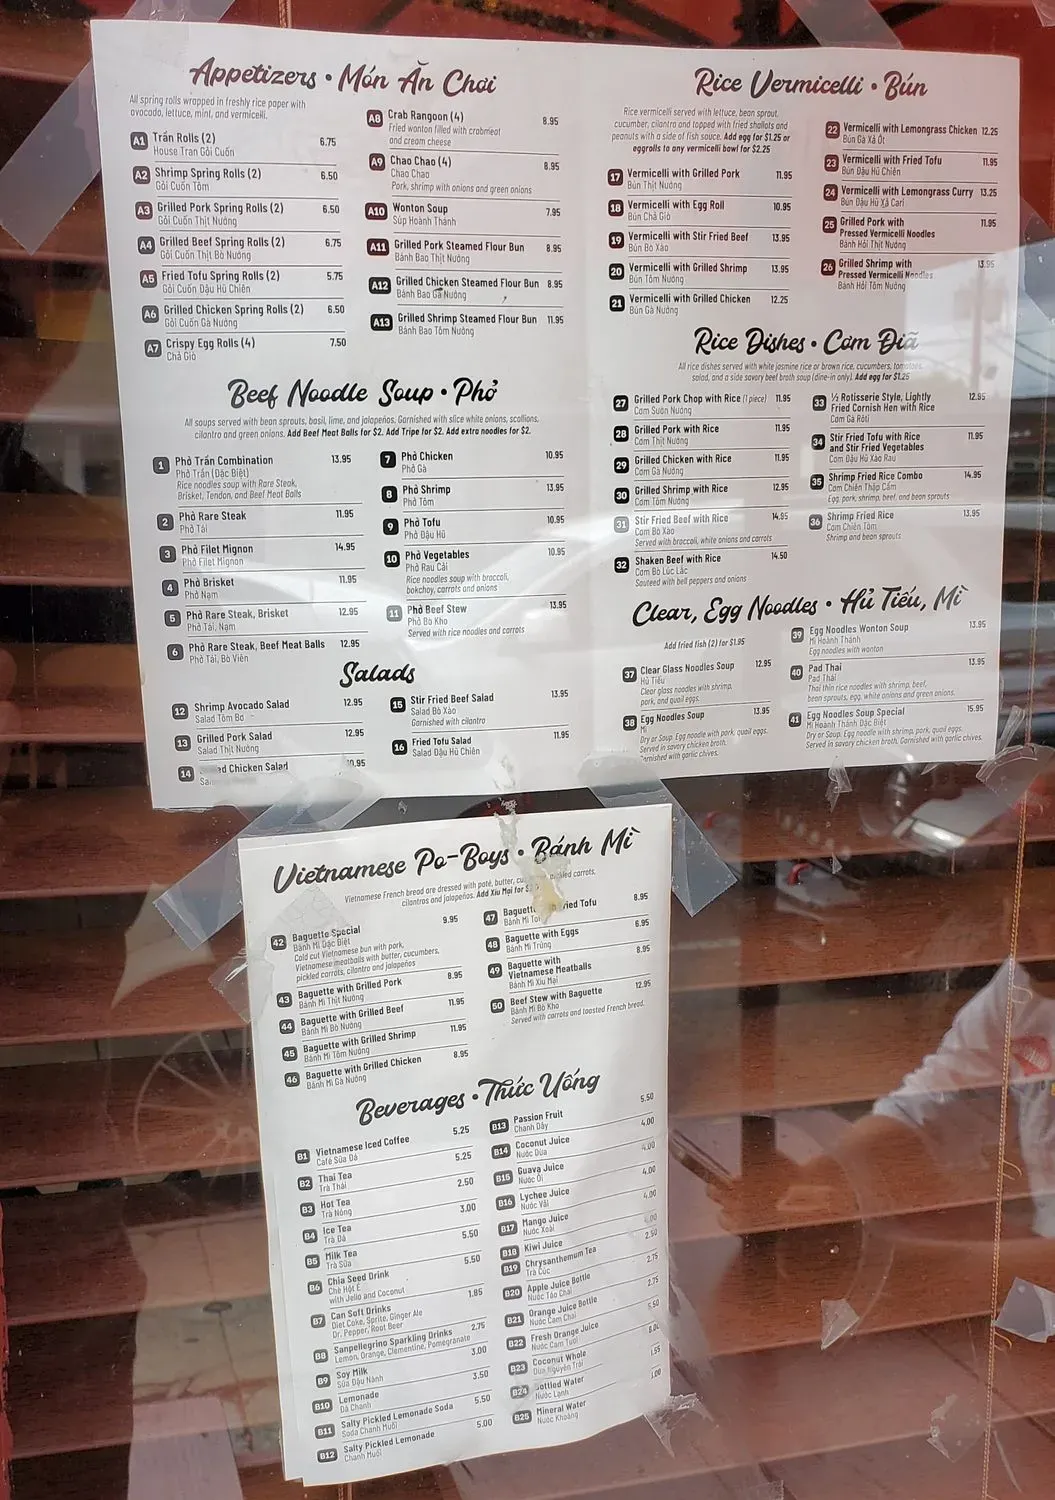 Appetizers • Món Ăn Chơi
All spring rolls wrapped in freshly rice paper with
avocado, lettuce, mint, and vermicelli.
A1 Trần Rolls (2) 6.75
House Tran Gỏi Cuốn
A2 Shrimp Spring Rolls (2) 6.50
Gỏi Cuốn Tôm
A3 Grilled Pork Spring Rolls (2) 6.50
Gỏi Cuốn Thịt Nướng
A4 Grilled Beef Spring Rolls (2) 6.75
Gỏi Cuốn Thịt Bò Nướng
A5 Fried Tofu Spring Rolls (2) 5.75
Gỏi Cuốn Dậu Hũ Chiên
A6 Grilled Chicken Spring Rolls (2) 6.50
Gỏi Cuốn Gà Nướng
A7 Crispy Egg Rolls (4) 7.50
Chả Giò
A8 Crab Rangoon (4) 8.95
Fried wonton filled with crabmeat
and cream cheese
A9 Chao Chao (4) 8.95
Chao Chao
Pork, shrimp with onions and green onions
A10 Wonton Soup 7.95
Súp Hoành Thánh
A11 Grilled Pork Steamed Flour Bun 8.95
Bánh Bao Thịt Nướng
A12 Grilled Chicken Steamed Flour Bun 8.95
Bánh Bao Gà Nướng
A13 Grilled Shrimp Steamed Flour Bun 11.95
Bánh Bao Tôm Nướng
Beef Noodle Soup • Phở
All soups served with bean sprouts, basil, lime, and jalapeños. Garnished with slice white onions, scallions,
cilantro and green onions. Add Beef Meat Balls for $2. Add Tripe for $2. Add extra noodles for $2.
1 Phở Trần Combination 13.95
Phở Trần (Đặc Biệt)
Rice noodles soup with Rare Steak,
Brisket, Tendon, and Beef Meat Balls
2 Phở Rare Steak 11.95
Phở Tái
3 Phở Filet Mignon 14.95
Phở Filet Mignon
4 Phở Brisket 11.95
Phở Nạm
5 Phở Rare Steak, Brisket 12.95
Phở Tái, Nạm
6 Phở Rare Steak, Beef Meat Balls 12.95
Phở Tái, Bò Viên
7 Phở Chicken 10.95
Phở Gà
8 Phở Shrimp 13.95
Phở Tôm
9 Phở Tofu 10.95
Phở Dậu Hũ
10 Phở Vegetables 10.95
Phở Rau Cải
Rice noodles soup with broccoli,
bokchoy, carrots and onions
11 Phở Beef Stew 13.95
Phở Bò Kho
Served with rice noodles and carrots
Salads
12 Shrimp Avocado Salad 12.95
Salad Tôm Bơ
13 Grilled Pork Salad 12.95
Salad Thịt Nướng
14 Chicken Salad
15 Stir Fried Beef Salad 13.95
Salad Bò Xào
Garnished with cilantro
16 Fried Tofu Salad 11.95
Salad Dậu Hũ Chiên
Rice Vermicelli • Bún
Rice vermicelli served with lettuce, bean sprout,
cucumber, cilantro and topped with fried shallots and
peanuts with a side of fish sauce. Add egg for $1.25 or
eggrolls to any vermicelli bowl for $2.25
17 Vermicelli with Grilled Pork 11.95
Bún Thịt Nướng
18 Vermicelli with Egg Roll 10.95
Bún Chả Giò
19 Vermicelli with Stir Fried Beef 13.95
Bún Bò Xào
20 Vermicelli with Grilled Shrimp 13.95
Bún Tôm Nướng
21 Vermicelli with Grilled Chicken 12.25
Bún Gà Nướng
22 Vermicelli with Lemongrass Chicken 12.25
Bún Gà Xả Ớt
23 Vermicelli with Fried Tofu 11.95
Bún Đậu Hũ Chiên
24 Vermicelli with Lemongrass Curry 13.25
Bún Dậu Hũ Xả Cari
25 Grilled Pork with 11.95
Pressed Vermicelli Noodles
Bánh Hỏi Thịt Nướng
26 Grilled Shrimp with 13.95
Pressed Vermicelli Noodles
Bánh Hỏi Tôm Nướng
Rice Dishes • Cơm Điã
All rice dishes served with white jasmine rice or brown rice, cucumbers, tomatoes,
salad, and a side savory beef broth soup (dine-in only). Add egg for $1.25
27 Grilled Pork Chop with Rice (1 piece) 11.95
Cơm Sườn Nướng
28 Grilled Pork with Rice 11.95
Cơm Thịt Nướng
29 Grilled Chicken with Rice 11.95
Cơm Gà Nướng
30 Grilled Shrimp with Rice 12.95
Cơm Tôm Nướng
31 Stir Fried Beef with Rice 14.95
Cơm Bò Xào
Served with broccoli, white onions and carrots
32 Shaken Beef with Rice 14.50
Cơm Bò Lúc Lắc
Sauteed with bell peppers and onions
33 ½ Rotisserie Style, Lightly 12.95
Fried Cornish Hen with Rice
Cơm Gà Rôti
34 Stir Fried Tofu with Rice 11.95
and Stir Fried Vegetables
Cơm Đậu Hũ Xào Rau
35 Shrimp Fried Rice Combo 14.95
Cơm Chiên Thập Cẩm
Egg, pork, shrimp, beef, and bean sprouts
36 Shrimp Fried Rice 13.95
Cơm Chiên Tôm
Shrimp and bean sprouts
Clear, Egg Noodles • Hủ Tiếu, Mì
Add fried fish (2) for $1.95
37 Clear Glass Noodles Soup 12.95
Hủ Tiếu
Clear glass noodles with shrimp,
pork, and quail eggs.
38 Egg Noodles Soup 13.95
Mì
Dry or Soup. Egg noodle with pork, quail eggs.
Served in savory chicken broth.
Garnished with garlic chives.
39 Egg Noodles Wonton Soup 13.95
Mì Hoành Thánh
Egg noodles with wonton
40 Pad Thai 13.95
Pad Thái
Thai thin rice noodles with shrimp, beef,
bean sprouts, egg, white onions and green onions.
41 Egg Noodles Soup Special 15.95
Mì Hoành Thánh Đặc Biệt
Dry or Soup. Egg noodle with shrimp, pork, quail eggs.
Served in savory chicken broth. Garnished with garlic chives.
Vietnamese Po-Boys • Bánh Mì
Vietnamese French bread are dressed with paté, butter, pickled carrots,
cilantros and jalapeños. Add Xíu Mại for
42 Baguette Special 9.95
Bánh Mì Đặc Biệt
Cold cut Vietnamese bun with pork,
Vietnamese meatballs with butter, cucumbers,
pickled carrots, cilantro and jalapeños
43 Baguette with Grilled Pork 8.95
Bánh Mì Thịt Nướng
44 Baguette with Grilled Beef 11.95
Bánh Mì Bò Nướng
45 Baguette with Grilled Shrimp 11.95
Bánh Mì Tôm Nướng
46 Baguette with Grilled Chicken 8.95
Bánh Mì Gà Nướng
47 Tofu 8.95
Bánh Mì
48 Baguette with Eggs 6.95
Bánh Mì Trứng
49 Baguette with 8.95
Vietnamese Meatballs
Bánh Mì Xíu Mại
50 Beef Stew with Baguette 12.95
Bánh Mì Bò Kho
Served with carrots and toasted French bread.
Beverages • Thức Uống
B1 Vietnamese Iced Coffee 5.25
Café Sữa Đá
B2 Thai Tea 5.25
Trà Thái
B3 Hot Tea 2.50
Trà Nóng
B4 Ice Tea 3.00
Trà Đá
B5 Milk Tea 5.50
Trà Sữa
B6 Chia Seed Drink 5.50
Chè Hột É
with Jello and Coconut
B7 Can Soft Drinks 1.85
Diet Coke, Sprite, Ginger Ale
Dr. Pepper, Root Beer
B8 Sanpellegrino Sparkling Drinks 2.75
Lemon, Orange, Clementine, Pomegranate
B9 Soy Milk 3.00
Sữa Đậu Nành
B10 Lemonade 3.50
Đá Chanh
B11 Salty Pickled Lemonade Soda 5.50
Soda Chanh Muối
B12 Salty Pickled Lemonade 5.00
Chanh Muối
B13 Passion Fruit 5.50
Chanh Dây
B14 Coconut Juice 4.00
Nước Dừa
B15 Guava Juice 4.00
Nước Ổi
B16 Lychee Juice 4.00
Nước Vải
B17 Mango Juice 4.00
Nước Xoài
B18 Kiwi Juice 4.00
B19 Chrysanthemum Tea 2.50
Trà Cúc
B20 Apple Juice Bottle 2.75
Nước Táo Chai
B21 Orange Juice Bottle 2.75
Nước Cam Chai
B22 Fresh Orange Juice 5.50
Nước Cam Tươi
B23 Coconut Whole
Dừa Nguyên Trái
B24 Bottled Water
Nước Lạnh
B25 Mineral Water
Nước Khoáng